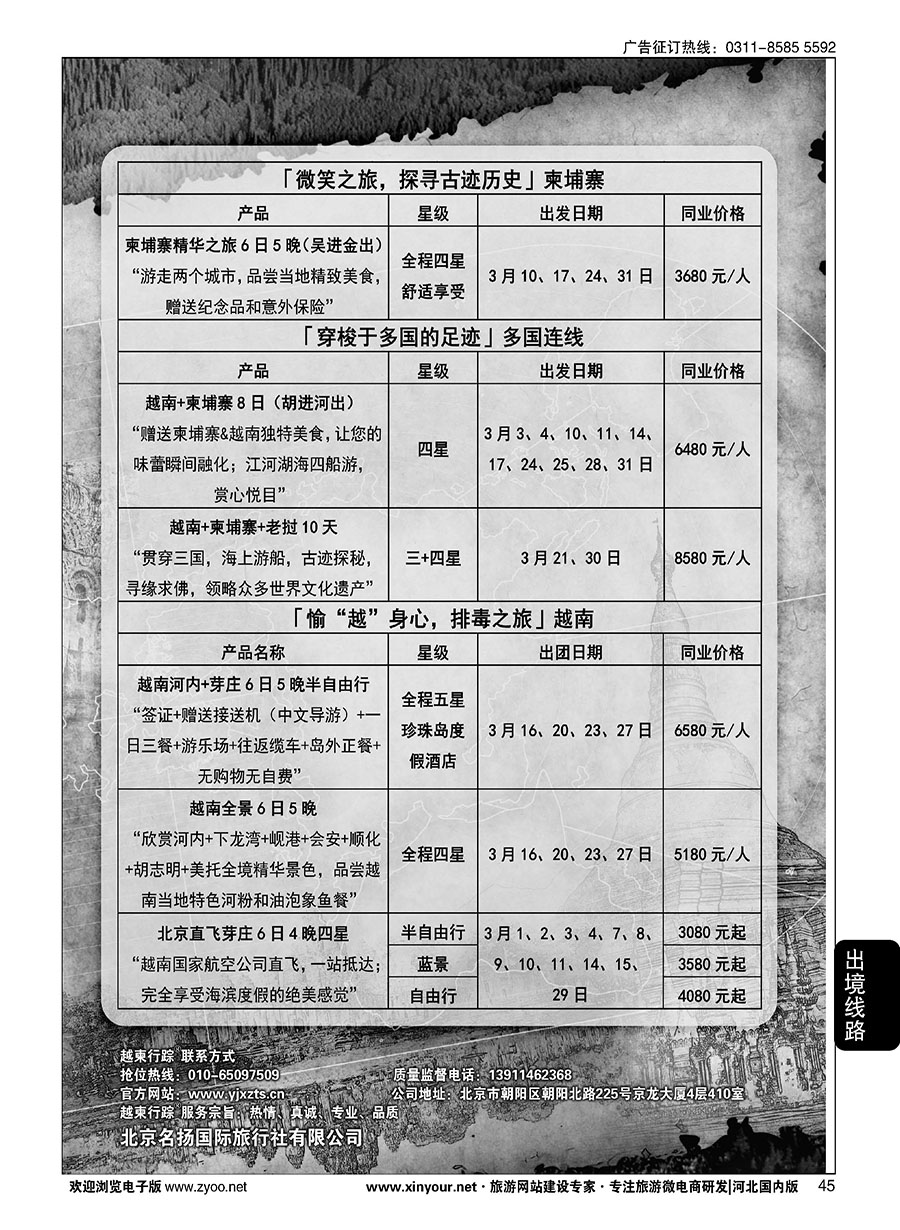 广告征订热线：0311-8585 5592
「微笑之旅，探寻古迹历史」柬埔寨
产品 星级 出发日期 同业价格
柬埔寨精华之旅6日5晚（吴进金出）
“游走两个城市，品尝当地精致美食，
赠送纪念品和意外保险”
全程四星
舒适享受
3月10、17、24、31日
3680元/人
「穿梭于多国的足迹」多国连线
产品 星级 出发日期 同业价格
越南+柬埔寨8日（胡进河出）
“赠送柬埔寨&越南独特美食，让您的
味蕾瞬间融化；江河湖海四船游，
赏心悦目”
四星
3月3、4、10、11、14、
17、24、25、28、31日
6480元/人
越南+柬埔寨+老挝10天
“贯穿三国，海上游船，古迹探秘，
寻缘求佛，领略众多世界文化遗产”
三+四星
3月21、30日
8580元/人
「愉“越”身心，排毒之旅」越南
产品名称 星级 出团日期 同业价格
越南河内+芽庄6日5晚半自由行
“签证+赠送接送机（中文导游）+一
日三餐+游乐场+往返缆车+岛外正餐+
无购物无自费”
全程五星
珍珠岛度
假酒店
3月16、20、23、27日
6580元/人
越南全景6日5晚
“欣赏河内+下龙湾+岘港+会安+顺化
+胡志明+美托全境精华景色，品尝越
南当地特色河粉和油泡象鱼餐”
全程四星
3月16、20、23、27日
5180元/人
北京直飞芽庄6日4晚四星
“越南国家航空公司直飞，一站抵达；
完全享受海滨度假的绝美感觉”
半自由行
蓝景
自由行
3月1、2、3、4、7、8、
9、10、11、14、15、
29日
3080元起
3580元起
4080元起
出境线路
越柬行踪 联系方式
抢位热线：010-65097509 质量监督电话：13911462368
官方网站：www.yjxzts.cn 公司地址：北京市朝阳区朝阳北路225号京龙大厦4层410室
越柬行踪 服务宗旨：热情、真诚、专业、品质
北京名扬国际旅行社有限公司
欢迎浏览电子版 www.zyoo.net www.xinyour.net·旅游网站建设专家·专注旅游微电商研发|河北国内版 45